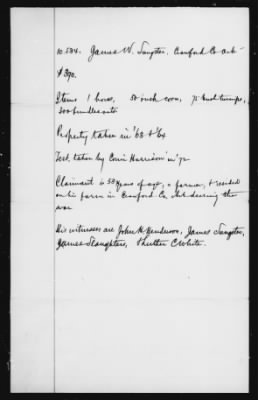 10.584. James W. Sangster, Crawford Co Ark
$390.
Items 1 horse, 50 bush corn, 75 bush turnips,
300 bundles oats
Property taken in '63 & '64
Test. taken by Com Harrison in '72
Claimant is 58 years of age, a farmer, & resided
on his farm in Crawford Co, Ark during the
war
His witnesses are John H Henderson, James Sangster,
James Slaughter, & White.